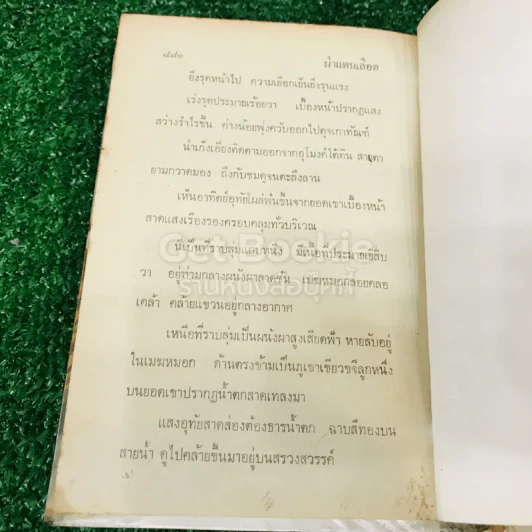 ผ่าแดนเลือด
ยิ่งรุดหน้าไป ความเยือกเย็นยิ่งรุนแรง
เร่งรุดประมาณร้อยวา เบื้องหน้าปรากฏแสง
สว่างรำไรขึ้น ค่างน้อยพุ่งควับออกไปดุจเกาทัณฑ์
น่ำเก็งเอียงติดตามออกจากอุโมงค์ใต้ดิน สายตา
ยามกวาดมอง ถึงกับชมดูจนตะลึงลาน
เห็นอาทิตย์อุทัยโผล่พ้นขึ้นจากยอดเขาเบื้องหน้า
สาดแสงเรืองรองครอบคลุมทั่วบริเวณ
นี่เป็นที่ราบลุ่มแถบหนึ่ง มีเนื้อที่ประมาณยี่สิบ
วา อยู่ท่ามกลางผนังผาลาดชัน เมฆหมอกลอยคลอ
เคล้า คล้ายแขวนอยู่กลางอากาศ
เหนือที่ราบลุ่มเป็นผนังผาสูงเสียดฟ้า หายลับอยู่
ในเมฆหมอก ด้านตรงข้ามเป็นภูเขาเขียวขจีลูกหนึ่ง
บนยอดเขาปรากฏน้ำตกสาดเทลงมา
แสงอุทัยสาดส่องต้องธารน้ำตก ฉาบสีทองบน
สายน้ำ ดูไปคล้ายขึ้นมาอยู่บนสรวงสวรรค์
Get Bookie
ร้านหนังสือบุ๊คกี้